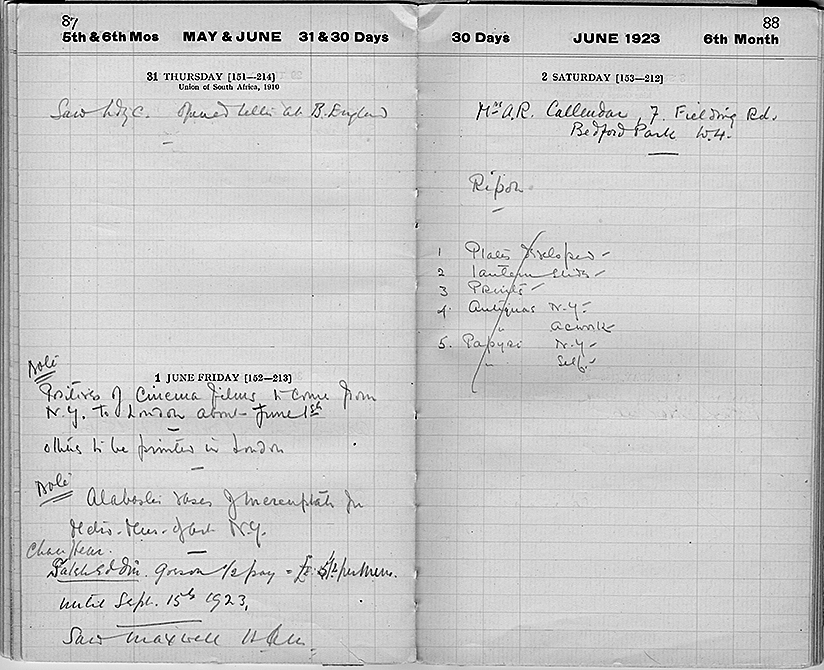 87
5th & 6th Mos MAY & JUNE 31 & 30 Days
31 THURSDAY [151—214]
Union of South Africa, 1910
Saw Lady C. opened letter at B. England
Note
1 JUNE FRIDAY [152—213]
Positives of Cinema films to come from
N.Y. to London about June 1st
others to be printed in London
Note
Alabaster vases of Merenptah for
Metro. Mus. of Art N.Y.
Chauffeur.
Saleh Ed Din. Goes on 1/2 pay = £ per Mens.
until Sept. 15th 1923.
Saw Maxwell
88
30 Days JUNE 1923 6th Month
2 SATURDAY [153—212]
Mrs A.R. Callendar, 7. Fielding Rd.
Bedford Park W.4.
Ripon
1 Plates developed
2 lantern slides
3 Prints
4. Antiquas N.Y.
" Acworth
5. Papyri N.Y.
" Self.